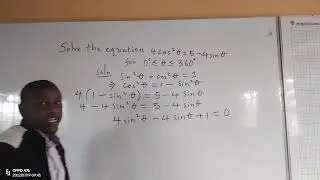 Solve the equation 4cos²θ = 5 - 4sinθ
for 0° ≤ θ ≤ 360°
Soln
sin²θ + cos²θ = 1
⇒ cos²θ = 1 - sin²θ
4(1 - sin²θ) = 5 - 4sinθ
4 - 4sin²θ = 5 - 4sinθ
4sin²θ - 4sinθ + 1 = 0
OPPO A76